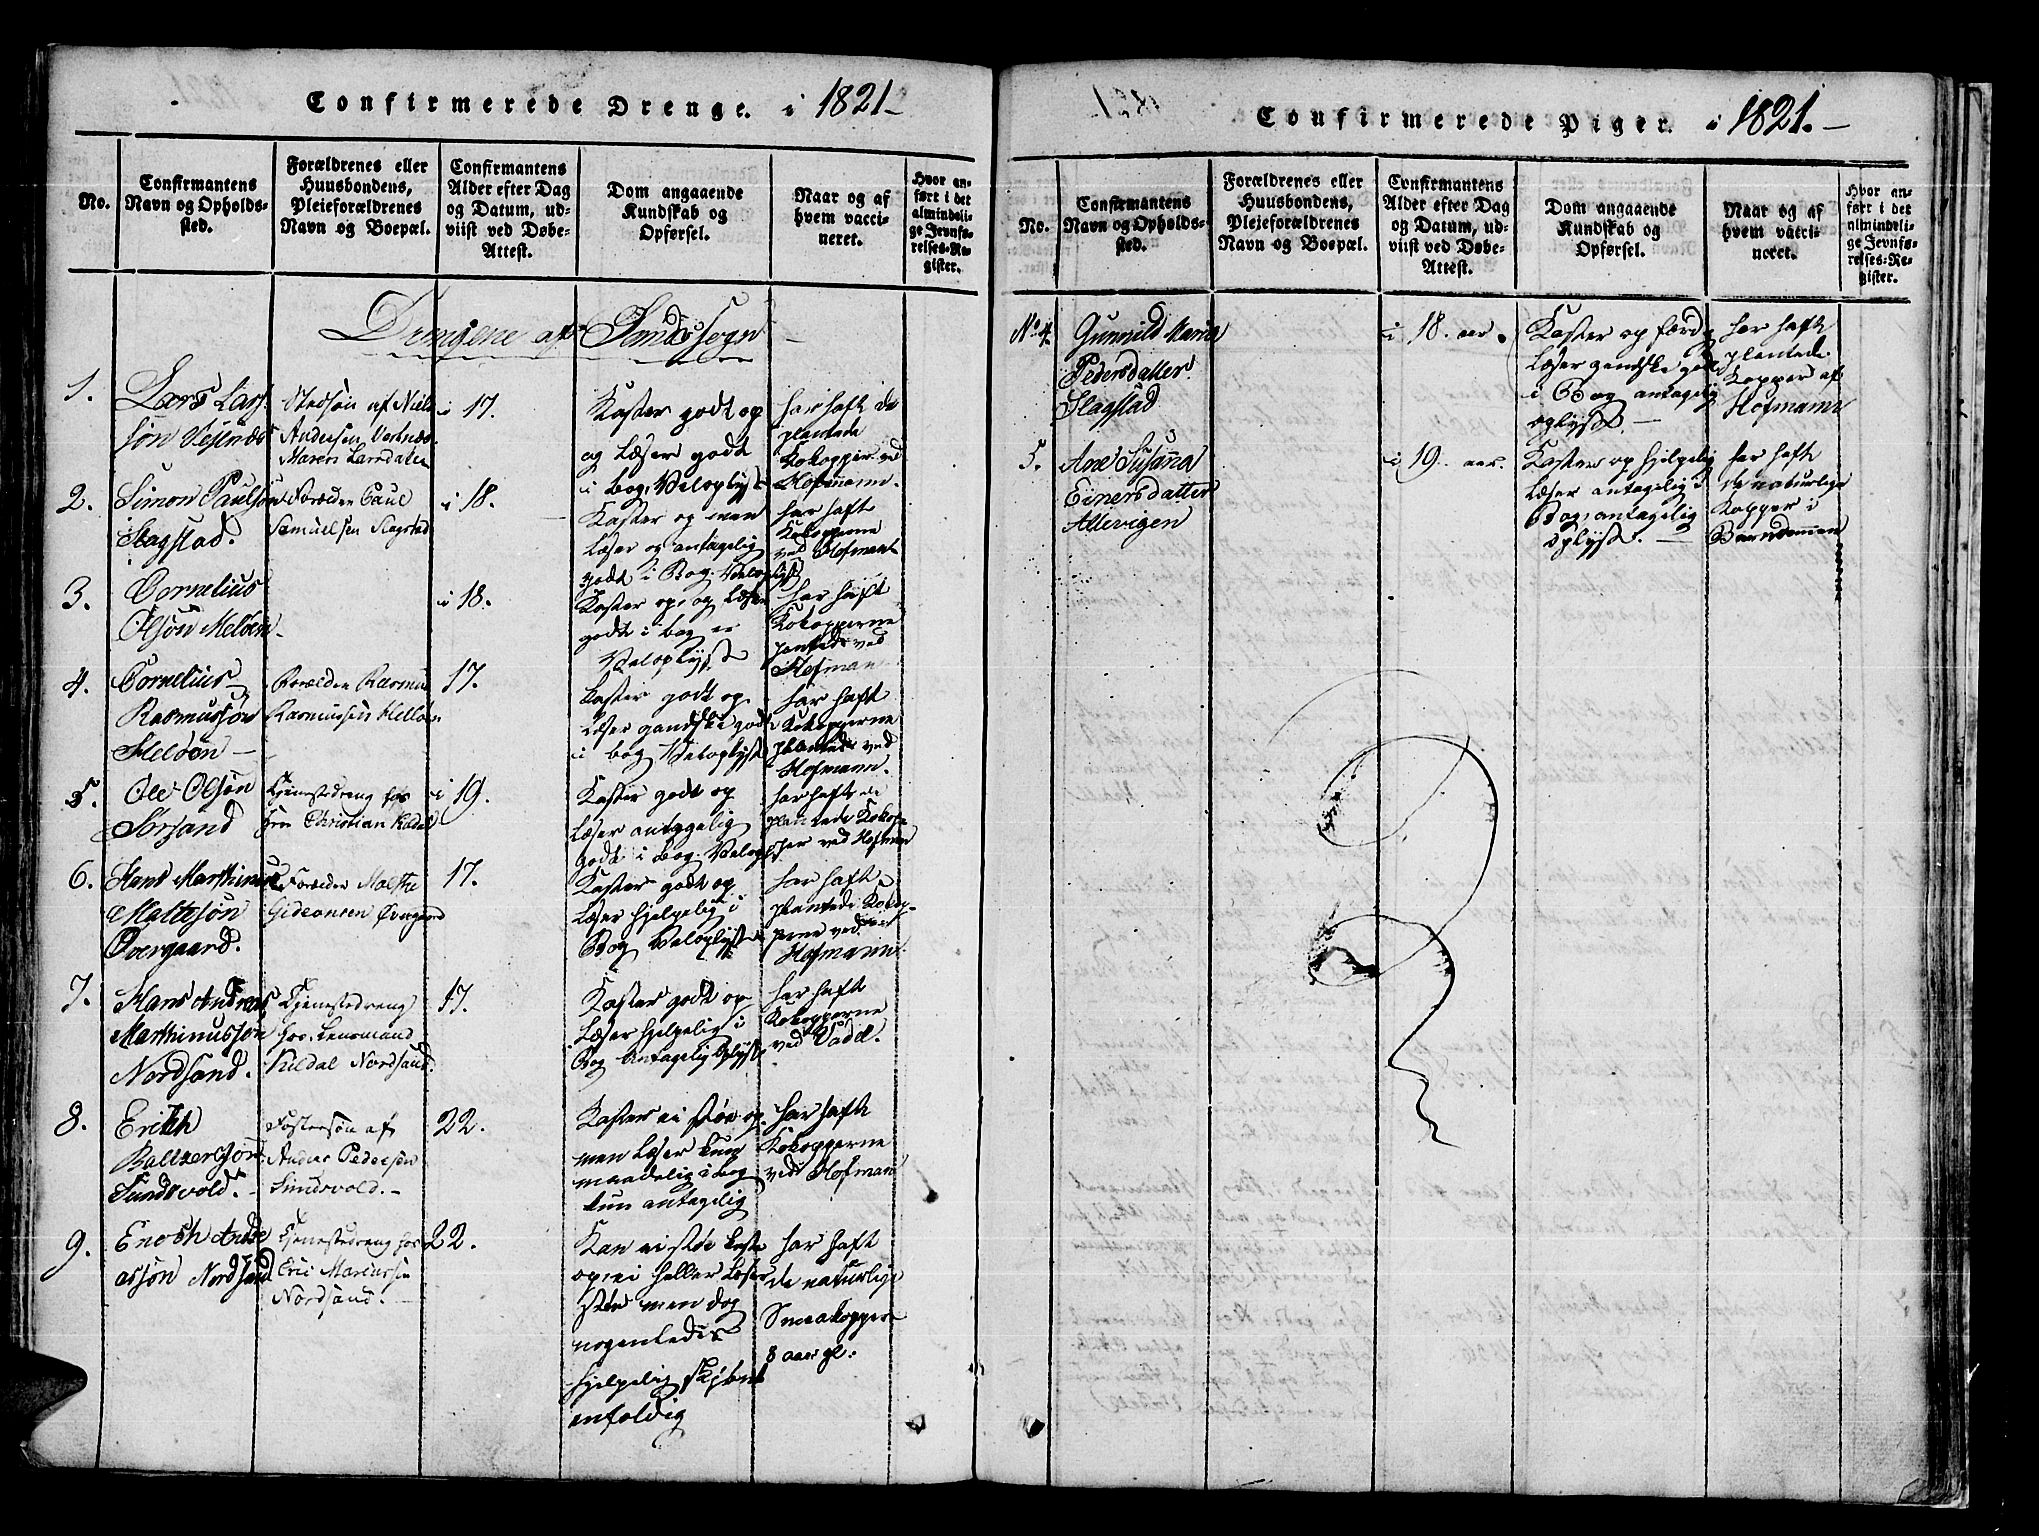 Confirmerede Drenge. i 1821
No.
Confirmantens
Navn og Opholds-
sted.
Forældrenes eller
Huusbondens,
Pleieforældrenes
Navn og Boepæl.
Confirmantens
Alder efter Dag
og Datum, ud-
viist ved Døbe-
Attest.
Dom angaaende
Kundskab og
Opførsel.
Naar og af
hvem vacci-
neret.
Hvor an-
ført i det
almindeli-
ge Jevnfø-
relses-Re-
gister.
Drengene af Sands Sogn
1.
Lars Lar-
søn
Stedsøn af Niels
Andersen
Maren Larsdatter
i 17.
Kaster godt op
og Læser godt
i Bog, Veloplyst
har haft de
plantede
Kokopper ved
Hofmann.
2.
Simon Paulsøn
Slagstad.
Forælder Paul
Samuelsen Slagstad
i 18.
Kaster op men
Læser og antagelig
godt i Bog. Veloplyst
har haft
Kokopperne
ved Hofmann
3.
Cornelius
Olsøn Meløen
i 18.
Kaster op, og Læser
godt i bog er
Veloplyst
har haft
Kokopperne
plantede ved
Hofman
4.
Cornelius
Rasmussøn
Meløen
Forælder Rasmus
Rasmussen
17.
Kaster godt op
Læser gandske godt
i bog Veloplyst
har haft
Kokopperne
plantede ved
Hofmann.
5.
Ole Olsøn
Sørsand
Tjenestedreng hos
Christian Kildal
i 19.
Kaster godt op
Læser antagelig
godt i Bog.
har haft de
plantede Kokop-
per ved Hofman
6.
Hans Marthinus
Maltesøn
Overgaard.
Forælder Malthe
Gideonsen Øvergaard
17.
Kaster godt op
Læser hjelpelig i
Bog Veloplyst
har haft
plantede Kokop-
perne ved
Hofmann
7.
Hans Andreas
Marthinussøn
Nordsand.
Tjenestedreng
hos Lensmand
Kildal Nordsand.
17.
Kaster godt op
Læser hjelpelig i
Bog Antagelig Oplyst
har haft
Kokopperne
ved Vadel.
8.
Erich
Baltzersøn
Sundsvold.
Fostersøn af
Anders Pedersen
22.
Kaster ei støe op
men Læser kun
maadelig i Bog
kun antagelig
har haft
Kokopperne
ved Hofman
9.
Enoch Andre
assøn Nordsand
Tjenestedreng hos
Eric Marcussen
Nordsand.
22.
Kan ei støe kaste
op, ei heller Læser
støe men dog
nogenledes
hjelpelig skjønt
enfoldig
har haft
de naturlige
Smaakopper
8 aar gl:
Confirmerede Piger. i 1821.
No.
Confirmantens
Navn og Opholds-
sted.
Forældrenes eller
Huusbondens,
Plejeforældrenes
Navn og Boepæl.
Confirmantens
Alder efter Dag
og Datum, ud-
viist ved Døbe-
Attest.
Dom angaaende
Kundskab og
Opførsel.
Naar og af
hvem vacci-
neret.
Hvor an-
ført i det
almindeli-
ge Jevnfø-
relses-Re-
gister.
No 4.
Gunnild Maria
Pedersdatter
Slagstad
i 18. aar.
Kaster op færdig
Læser gandske godt
i Bog antagelig
oplyst.
har haft
plantede
Kopper af
Hofmann
5.
Ane Susanna
Einersdatter
Allevigen
i 19. aar.
Kaster op hjelpelig
Læser antagelig i
Bog, antagelig
oplyst.
har haft
de naturlige
Kopper i
Barndommen